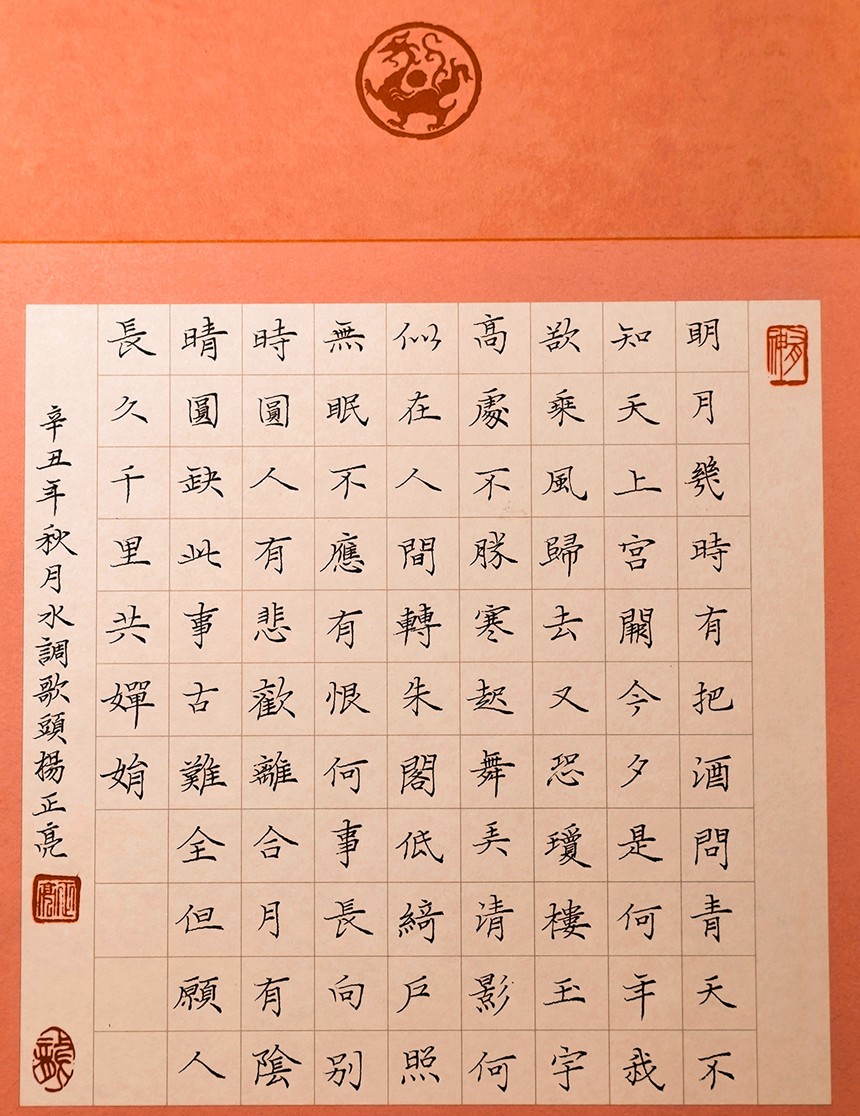 明月幾時有把酒問青天不
知天上宮闕今夕是何年我
欲乘風歸去又恐瓊樓玉宇
高處不勝寒起舞弄清影何
似在人間轉朱閣低綺戶照
無眠不應有恨何事長向別
時圓人有悲歡離合月有陰
晴圓缺此事古難全但願人
長久千里共嬋娟
辛丑年秋月水調歌頭楊正亮
正亮